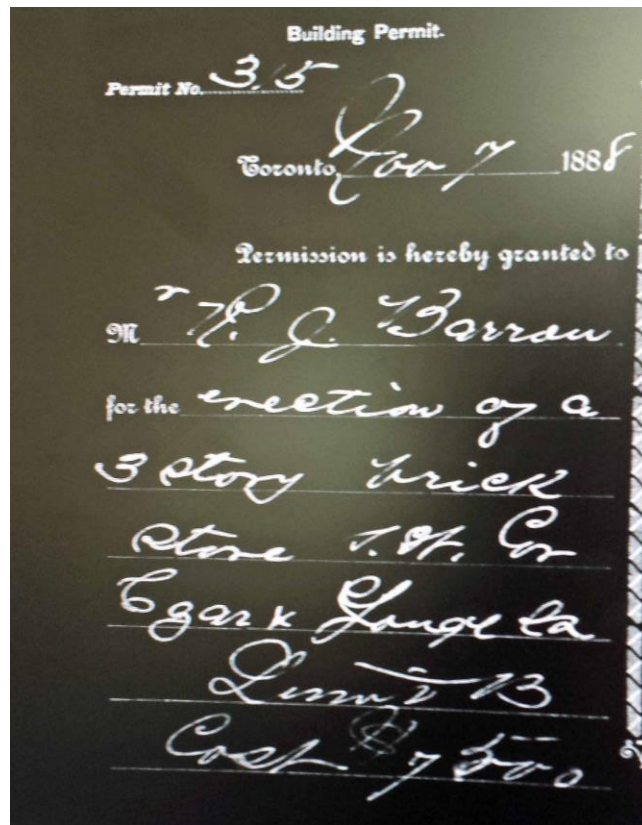 Building Permit.
Permit No. 315
Toronto, Nov 7 1888
Permission is hereby granted to
Mr R. J. Barron
for the erection of a
3 story brick
store S.W. Cor
Yonge
Limit B
Cost $7500